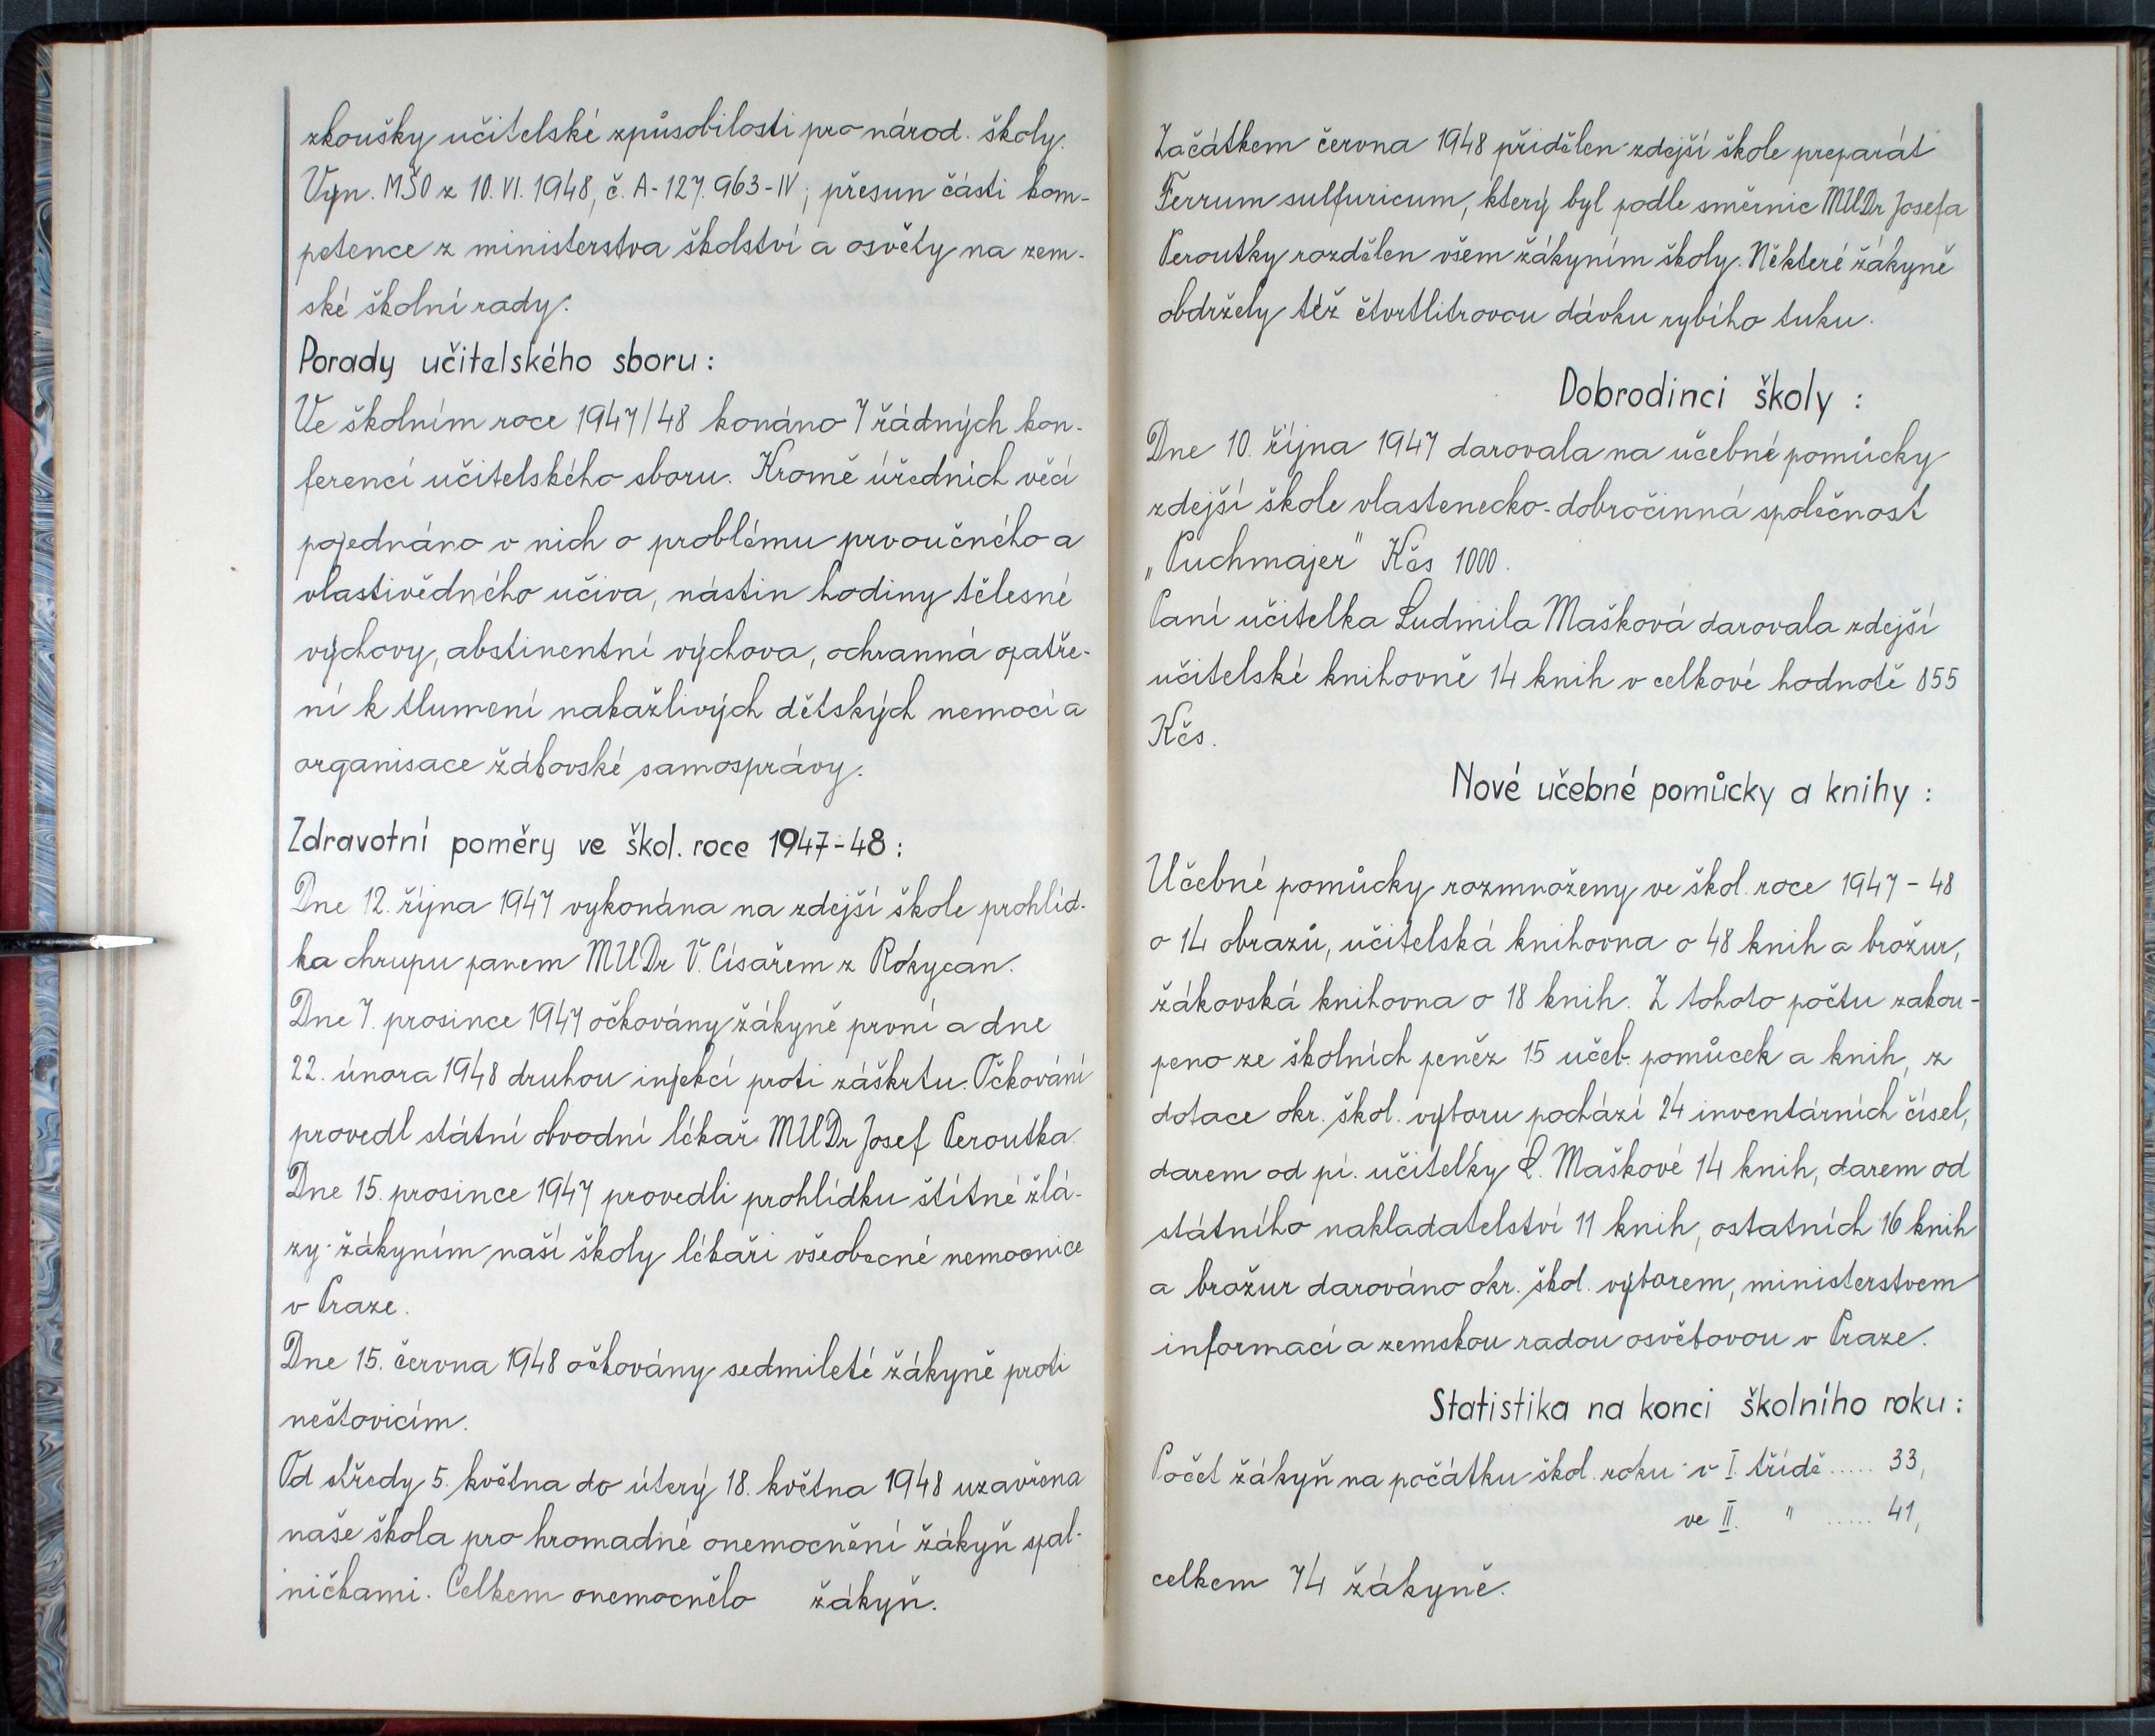 zkoušky učitelské způsobilosti pro národ. školy.
Vyn. MŠO z 10. VI. 1948, č. A-127.963-IV; přesun části kom-
petence z ministerstva školství a osvěty na zem-
ské školní rady.
Porady učitelského sboru:
Ve školním roce 1947/48 konáno 7 řádných kon-
ferencí učitelského sboru. Kromě úředních věcí
pojednáno v nich o problému prvoučného a
vlastivědného učiva, nástin hodiny tělesné
výchovy, abstinentní výchova, ochranná opatře-
ní k tlumení nakažlivých dětských nemocí a
organisace žákovské samosprávy.
Zdravotní poměry ve škol. roce 1947-48:
Dne 12. října 1947 vykonána na zdejší škole prohlíd-
ka chrupu panem MUDr V. Císařem z Rokycan.
Dne 7. prosince 1947 očkovány žákyně první a dne
22. února 1948 druhou injekcí proti záškrtu. Očkování
provedl státní obvodní lékař MUDr Josef Peroutka.
Dne 15. prosince 1947 provedli prohlídku štítné žlá-
zy žákyním naší školy lékaři všeobecné nemocnice
v Praze.
Dne 15. června 1948 očkovány sedmileté žákyně proti
neštovicím.
Od středy 5. května do úterý 18. května 1948 uzavřena
naše škola pro hromadné onemocnění žákyň spal-
ničkami. Celkem onemocnělo žákyň.
Začátkem června 1948 přidělen zdejší škole preparát
Ferrum sulfuricum, který byl podle směrnic MUDr Josefa
Peroutky rozdělen všem žákyním školy. Některé žákyně
obdržely též čtvrtlitrovou dávku rybího tuku.
Dobrodinci školy:
Dne 10. října 1947 darovala na učebné pomůcky
zdejší škole vlastenecko-dobročinná společnost
„Puchmajer" Kčs 1000.
Paní učitelka Ludmila Mašková darovala zdejší
učitelské knihovně 14 knih v celkové hodnotě 855
Kčs.
Nové učebné pomůcky a knihy:
Učebné pomůcky rozmnoženy ve škol. roce 1947-48
o 14 obrazů, učitelská knihovna o 48 knih a brožur,
žákovská knihovna o 18 knih. Z tohoto počtu zakou-
peno ze školních peněz 15 učeb. pomůcek a knih, z
dotace okr. škol. výboru pochází 24 inventárních čísel,
darem od pí. učitelky L. Maškové 14 knih, darem od
státního nakladatelství 11 knih, ostatních 16 knih
a brožur darováno okr. škol. výborem, ministerstvem
informací a zemskou radou osvětovou v Praze.
Statistika na konci školního roku:
Počet žákyň na počátku škol. roku v I. třídě ..... 33,
ve II. " ..... 41,
celkem 74 žákyně.